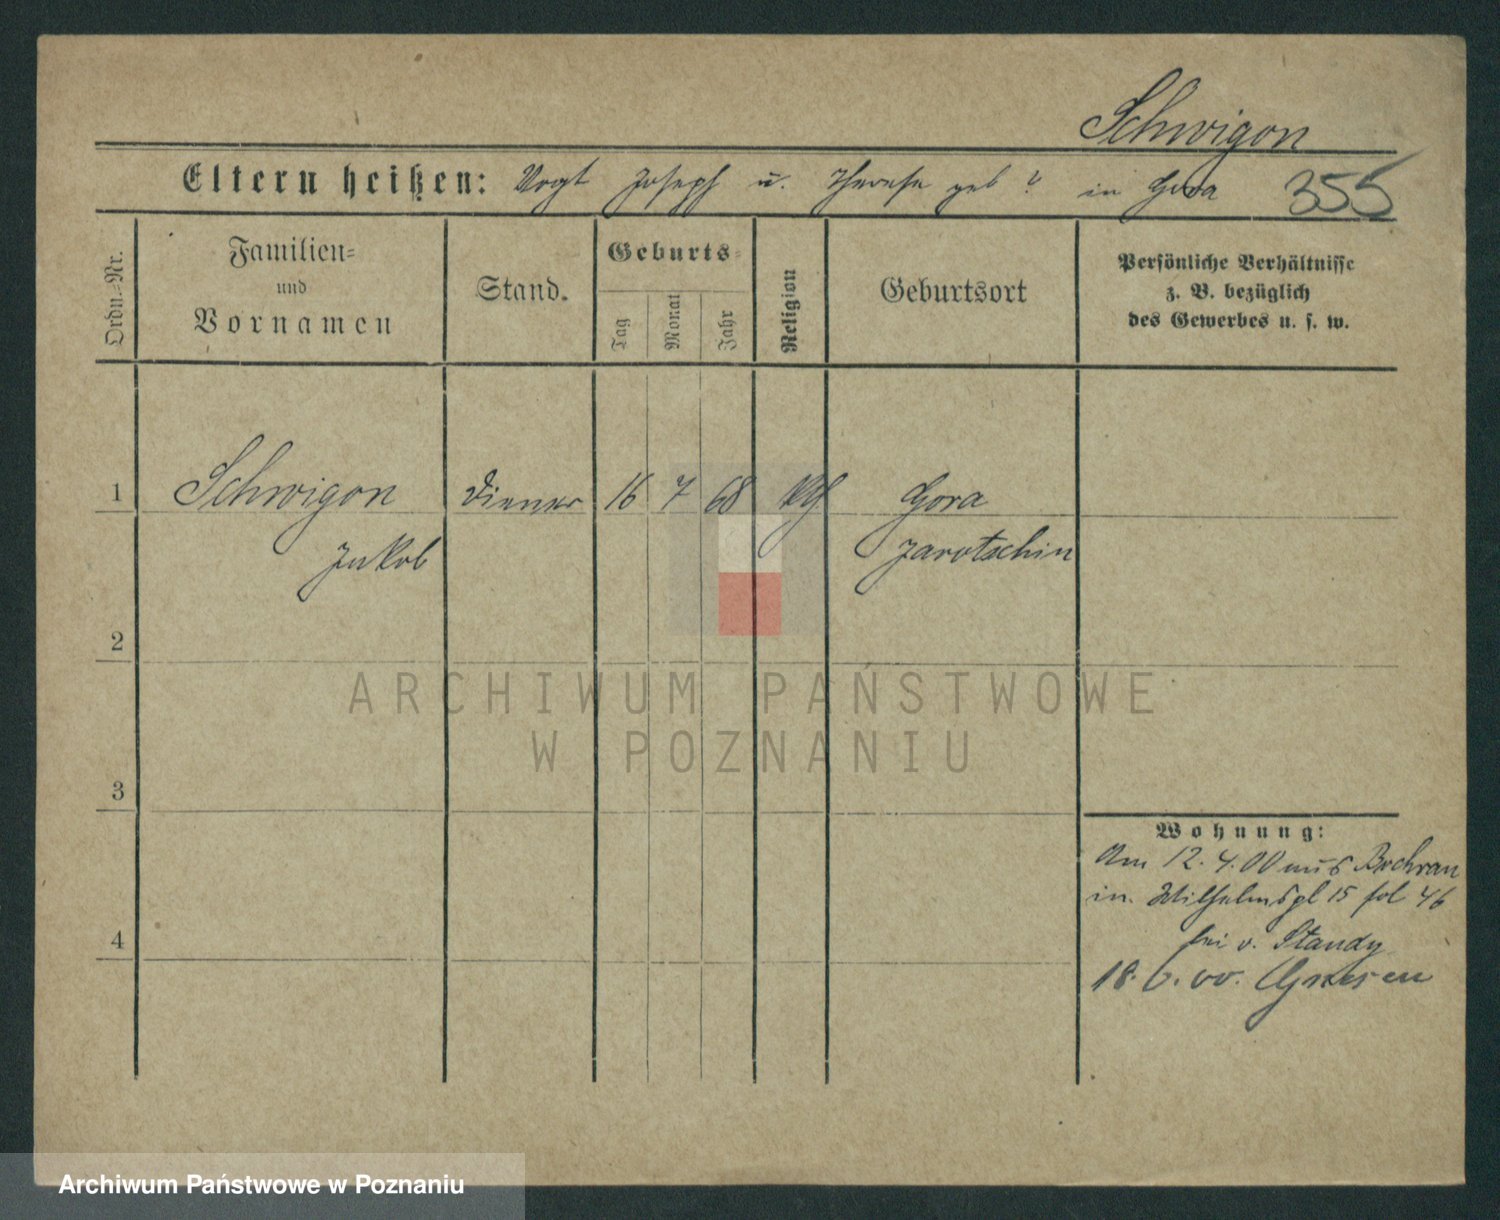 Schwigon
Eltern heißen: Vogt Joseph u. Therese geb ? in Gora 355
Ordn.-Nr.
Familien-
und
Vornamen
Stand.
Geburts-
Tag
Monat
Jahr
Religion
Geburtsort
Persönliche Verhältnisse
z. B. bezüglich
des Gewerbes u. s. w.
1 Schwigon Diener 16 7 68 Gora
Jakob Jarotschin
2
3
4
Wohnung:
Am 12. 4. 00 aus
in Wilhelmspl 15 fol 46
bei v. Standy
18. 6. 00. Gnesen
ARCHIWUM PAŃSTWOWE
W POZNANIU
Archiwum Państwowe w Poznaniu